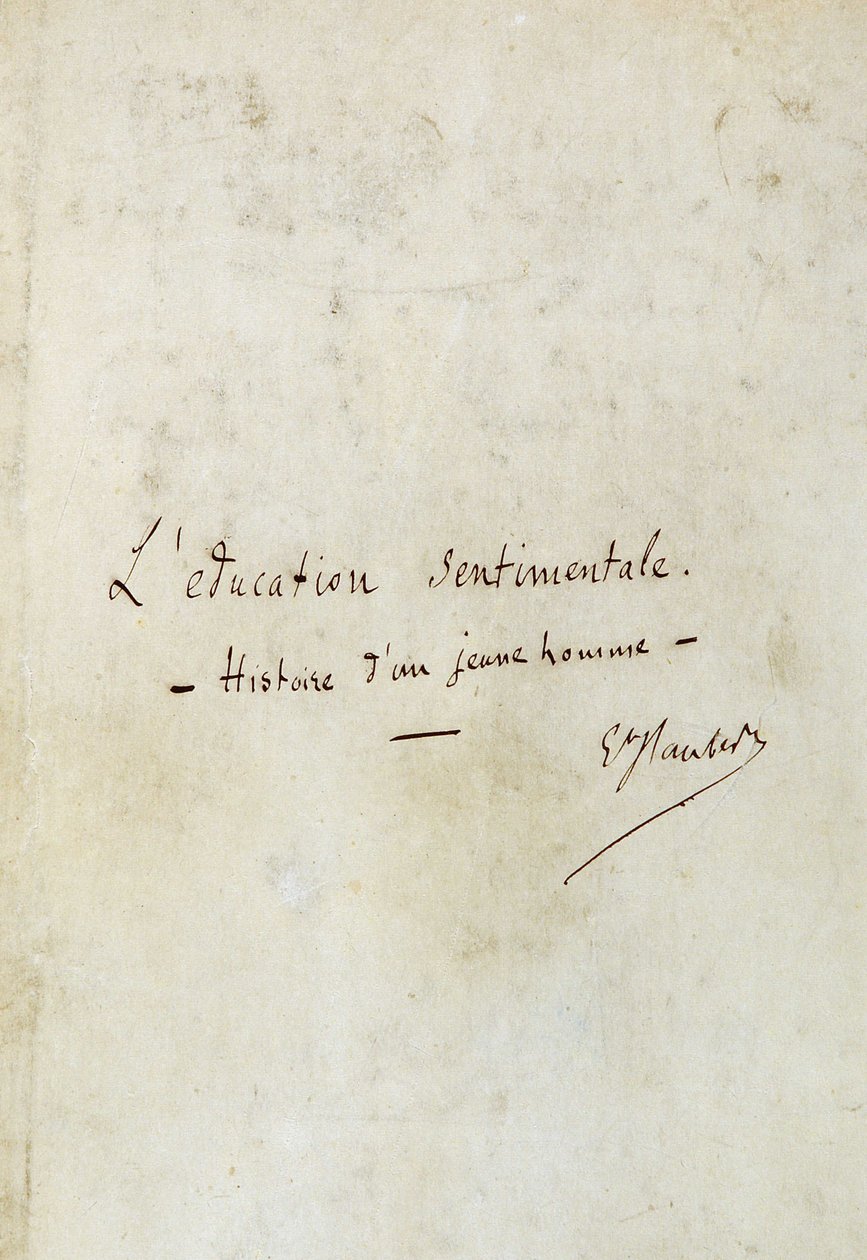 L'education sentimentale.
- Histoire d'un jeune homme -
Gve Flaubert